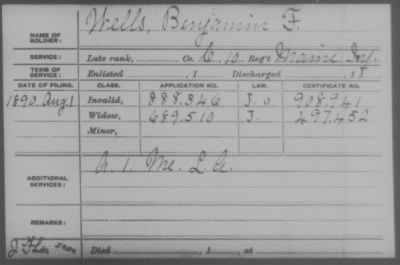 NAME OF SOLDIER: Wells, Benjamin F.
SERVICE: Late rank, Co. C, 10 Reg't Maine Inf.
TERM OF SERVICE: Enlisted , 1 Discharged , 1
DATE OF FILING. CLASS. APPLICATION NO. LAW. CERTIFICATE NO.
1890, Aug. 1 Invalid, 888.346 J.O. 908.941
Widow, 689.510 J. 497.452
Minor,
ADDITIONAL SERVICES: A. 1, Me. L. A.
REMARKS:
Died , 1 , at